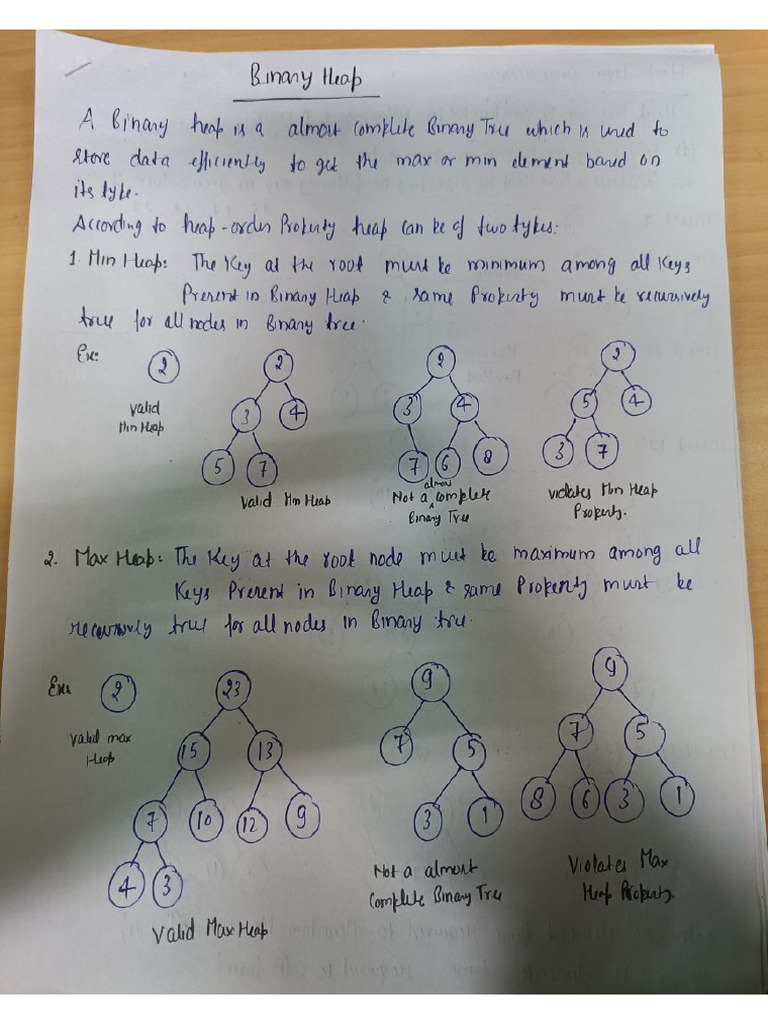 Binary Heap
A Binary heap is a almost complete Binary Tree which is used to
store data efficiently to get the max or min element based on
its type.
According to heap-order Property heap can be of two types:
1. Min Heap: The Key at the root must be minimum among all Keys
Present in Binary Heap & same Property must be recursively
true for all nodes in Binary tree.
Ex:
2
Valid
Min Heap
2
3 4
5 7
Valid Min Heap
2
3 4
7 6 8
Not a almost complete
Binary Tree
2
5 4
3 7
violates Min Heap
Property.
2. Max Heap: The Key at the root node must be maximum among all
Keys Present in Binary Heap & same Property must be
recursively true for all nodes in Binary tree.
Ex:
2
Valid max
Heap
23
15 13
7 10 12 9
4 3
Valid Max Heap
9
7 5
3 1
Not a almost
Complete Binary Tree
9
7 5
8 6 3 1
Violates Max
Heap Property.